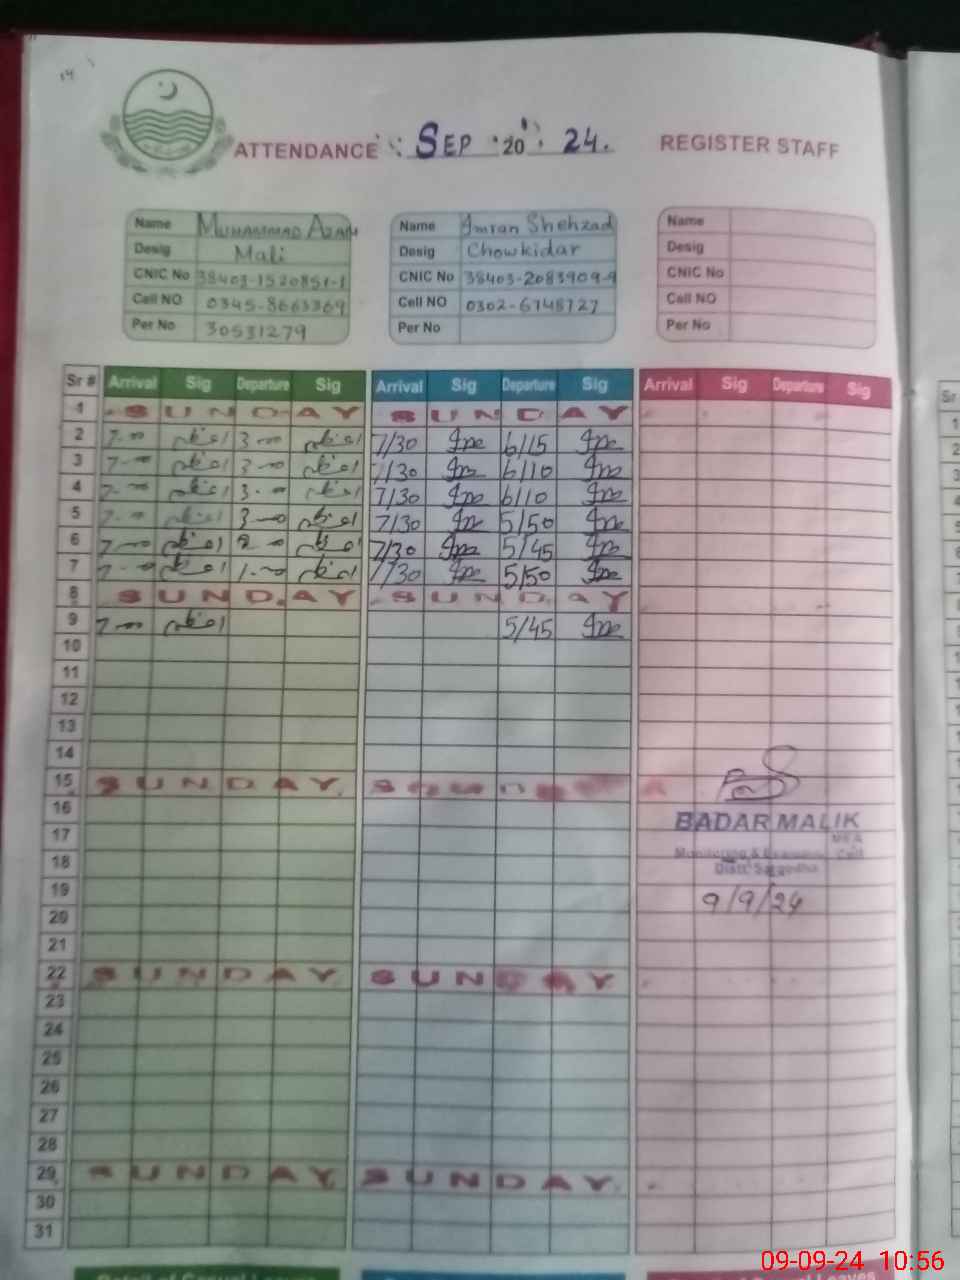 ATTENDANCE SEP 2024. REGISTER STAFF
Name MUHAMMAD AZAM
Desig Mali
CNIC No 38403-1520851-1
Cell NO 0345-8663369
Per No 30531279
Name Imran Shehzad
Desig Chowkidar
CNIC No 38403-2083909-9
Cell NO 0302-6748727
Per No
Name
Desig
CNIC No
Cell NO
Per No
Sr # Arrival Sig Departure Sig Arrival Sig Departure Sig Arrival Sig Departure Sig
1 SUNDAY SUNDAY
2 7-00 اعظم 3-00 اعظم 7/30 6/15
3 7-00 اعظم 3-00 اعظم 7/30 6/10
4 7-00 اعظم 3-00 اعظم 7/30 6/10
5 7-00 اعظم 3-00 اعظم 7/30 5/50
6 7-00 اعظم 2-00 اعظم 7/30 5/45
7 7-00 اعظم 1-00 اعظم 7/30 5/50
8 SUNDAY SUNDAY
9 7-00 اعظم 5/45
10
11
12
13
14
15 SUNDAY
16
17
18
19
20
21
22 SUNDAY SUNDAY
23
24
25
26
27
28
29 SUNDAY SUNDAY
30
31
BADAR MALIK
MEA
Distt. Sargodha
9/9/24
09-09-24 10:56